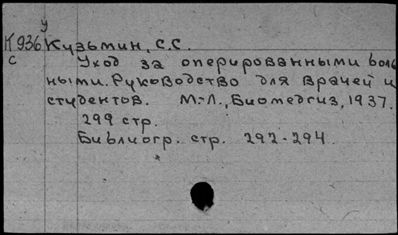 у
К 936 Кузьмин, С.С.
с Уход за оперированными боль
ными. Руководство для врачей и
студентов. М.-Л., Биомедгиз, 1937.
299 стр.
Библиогр. стр. 292-294.